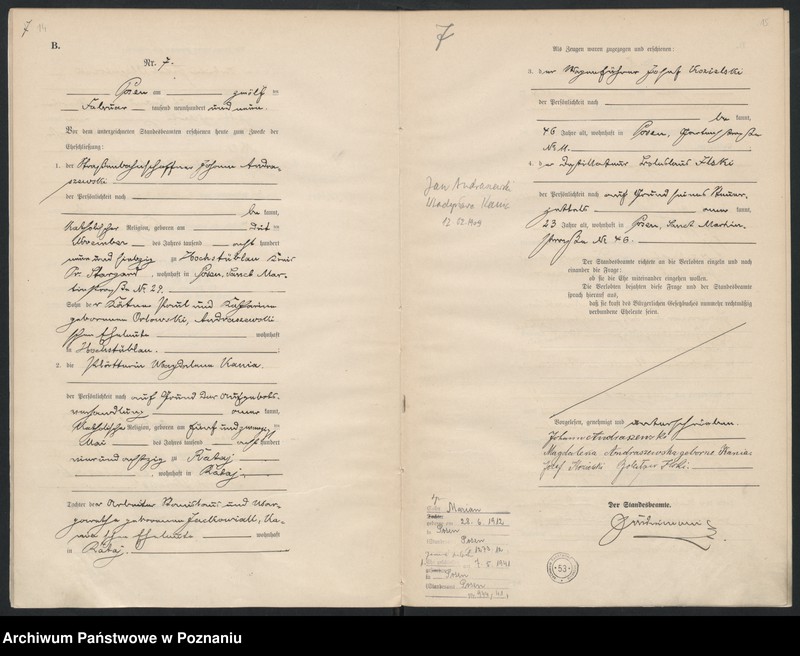 7
14
B.
Nr. 7.
Posen am zwölf ten
Februar tausend neunhundert und neun.
Vor dem unterzeichneten Standesbeamten erschienen heute zum Zwecke der
Eheschließung:
1. der Straßenbahnschaffner Johann Andra-
szewski
der Persönlichkeit nach
be kannt,
katholischer Religion, geboren am
November des Jahres tausend acht hundert
neun und siebzig zu Hochstüblau Kreis
Pr. Stargard, wohnhaft in Posen, Sanct Mar-
tinstraße Nr. 29.
Sohn der Paul und Katharina
geborenen Orlowski, Andraszewski
schen Eheleute wohnhaft
in Hochstüblau.
2. die Plätterin Magdalena Kania.
der Persönlichkeit nach auf Grund der Aufgebots-
verhandlung aner kannt,
katholischer Religion, geboren am fünf und zwanzig ten
Mai des Jahres tausend acht hundert
vier und achtzig zu Rataj
, wohnhaft in Rataj.
Tochter der Arbeiter Stanislaus und Mar-
garetha geborenen Ka-
nia schen Eheleute wohnhaft
in Rataj.
7
15
Als Zeugen waren zugezogen und erschienen:
3. der Wagenführer Josef Kozielski
der Persönlichkeit nach
be kannt,
46 Jahre alt, wohnhaft in Posen, Gartenstraße
Nr. 11.
4. der Destillateur Boleslaus Ilski
der Persönlichkeit nach auf Grund seines Steuer-
zettels aner kannt,
23 Jahre alt, wohnhaft in Posen, Sanct Martin-
straße Nr. 46.
Jan Andraszewski
Kania
12.02.1909
Der Standesbeamte richtete an die Verlobten einzeln und nach
einander die Frage:
ob sie die Ehe miteinander eingehen wollen.
Die Verlobten bejahten diese Frage und der Standesbeamte
sprach hierauf aus,
daß sie kraft des Bürgerlichen Gesetzbuchs nunmehr rechtmäßig
verbundene Eheleute seien.
Vorgelesen, genehmigt und unterschrieben.
Johann Andraszewski
Magdalena Andraszewska geborne Kania
Josef Bolesław Ilski
Der Standesbeamte.
Marian
geboren am 28.6.1912
in Posen
Posen
9.5.1941
Posen
Posen
53
Archiwum Państwowe w Poznaniu